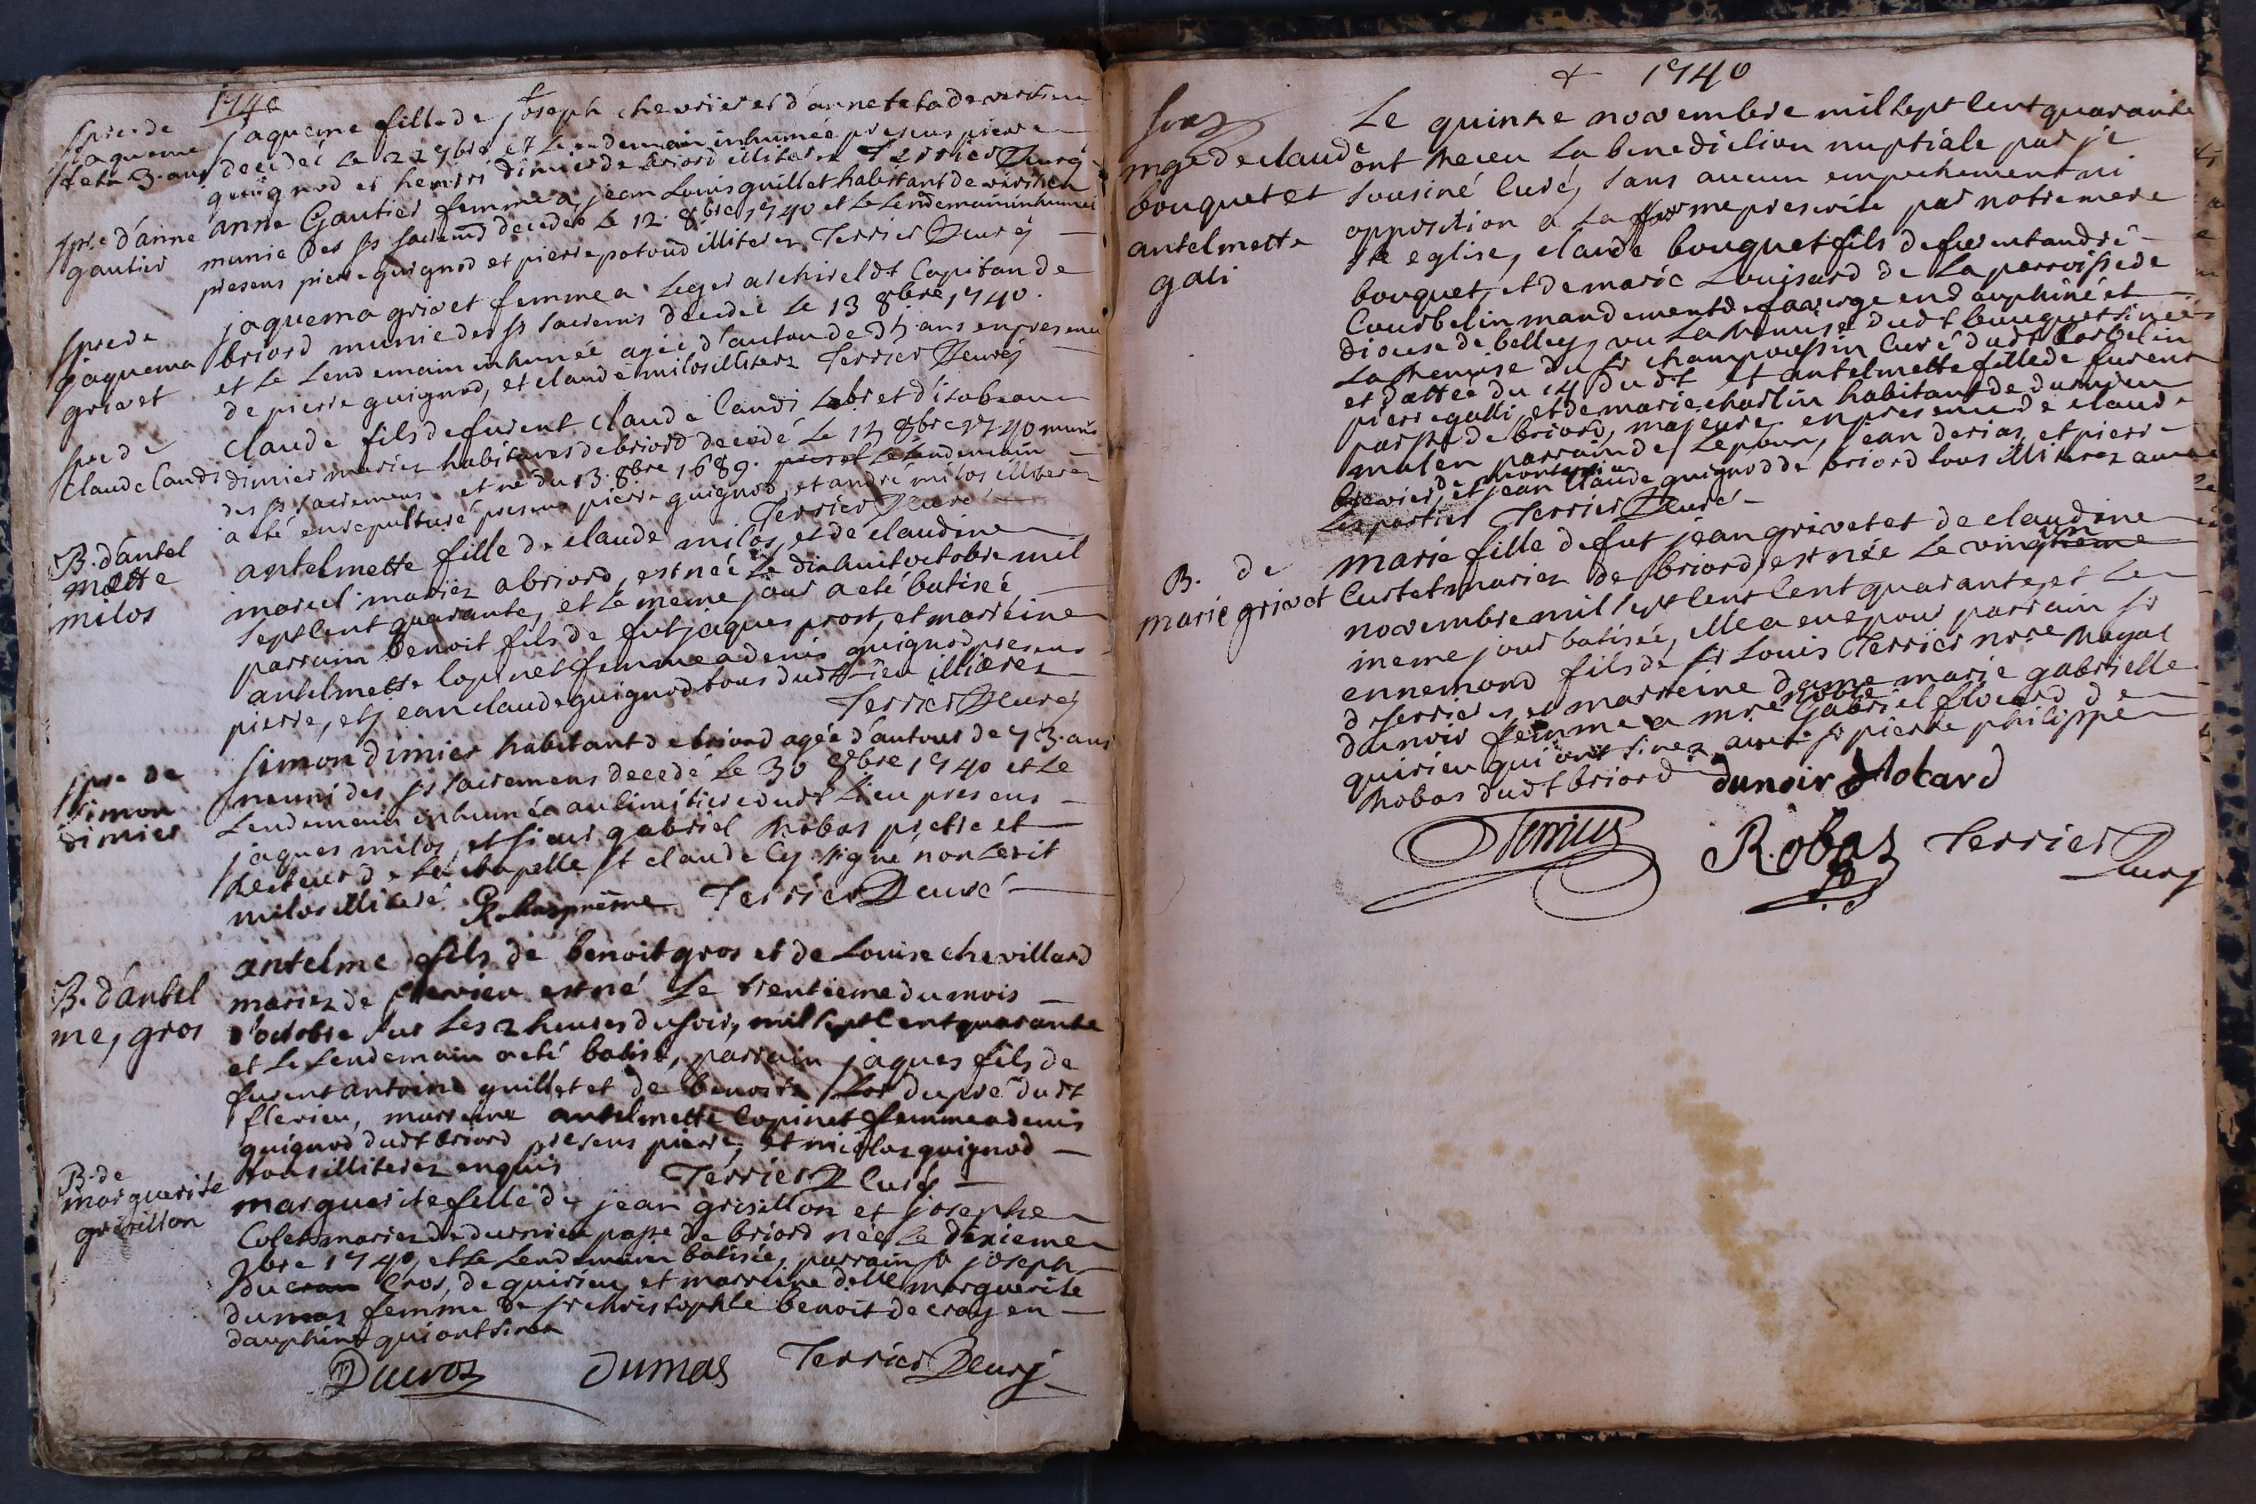 1740
Spre de
jaqueme
feta 3. ans
jaqueme fille de joseph chevrier et d'anne feta de verisieu
decedeé le 22 7bre et le endemain inhumée presens pierre
guignod et henrri dimier de briord illiterez Terrier Curé
Spre d'anne
gautier
anne Gautier femme a jean Louis guillet habitant de verisieu
munie des sts sacrem̃s decedeé le 12. 8bre 1740 et le lendemain inhumeé
presens pierre guignod et pierre potoud illiterez Terrier Curé
Spre de
jaquema
grivet
jaquema grivet femme a leger archirel dt Capitan de
briord munie des sts sacremens decedeé le 13 8bre 1740.
et le lendemain inhumée agée d'autour de ans en presence
de pierre guignod, et claude milos illiterz Terrier Curé
Spre de
Claude Candi
Claude fils de furent Claude Candi et d'isabeau
dimier mariez habitans de briord decedé le 17 8bre 1740 munis
des sts sacremens et né du 13. 8bre 1689. le lendemain
a eté ensepulturé presens pierre guignod, et andré milos illiterez
Terrier Curé
B. d'antel
mette
milos
antelmette fille de claude milos, et de claudine
marcel mariez a briord, est née le dix huit octobre mil
sept cent quarante, et le meme jour a eté batiseé
parrain benoit fils de fut jaques prost, et marreine
antelmette lopinet femme a denis guignod presens
pierre, et jean claude guignod tous dudt lieu illiterez
Terrier Curé
Spre de
simon
dimier
simon dimier habitant de briord agée d'autour de 73. ans
neuni des sts sacremens decedé le 30 8bre 1740 et le
lendemain inhumé au cimitiere dudt lieu presens
jaques milos, et sieur gabriel Robas pretre et
Recteur de la chapelle st claude cy signé non ledit
milos illiteré Robas prestre Terrier Curé
B. d'antel
me, gros
antelme fils de benoit gros et de Louise chevillard
mariez de flerieu est né le trentieme du mois
d'octobre sur les 2 heures du soir, mil sept cent quarante
et le lendemain a eté batisé, parrain jaques fils de
furent antoine guillet et de benoite du pré dudt
flerieu, marreine antelmette lopinet femme a denis
guignod dudt briord presens pierre, et nicolas guignod
tous illiterez enquis Terrier Curé
B. de
marguerite
grisillon
marguerite fille de jean grisillon et josephe
Colet mariez de durnieu passe de briord neé le dixieme
9bre 1740, et le lendemain batisée, parrain sr joseph
Ducros, de quirieu, et marreine delle marguerite
dumas femme de sr christophle benoit de cray en
dauphiné qui ont sinez
Ducros Dumas Terrier Curé
+ 1740
mge de claude
bouquet et
antelmette
gali
Le quinze novembre mil sept cent quarante
ont Receu la benediction nuptiale par je
sousiné Curé, sans aucun empechement ni
opposition a la forme prescrite par notre mere
ste eglise, claude bouquet fils de furent andré
bouquet, et de marie Louisard de la parroisse de
Courbelin mandement de faverge en dauphiné et
diocese de belley, vu la Remise dudt bouquet sineé
la Remise du sr champroussin Curé dudt Corbelin
et dattée du 14 dudt et antelmette fille de furent
pierre galli, et de marie charlin habitant de durnieu
parsse de briord, majeure en presence de claude
mulen parrain de l'epoux, jean derias, et pierre
de montanie
brevier, et jean claude guignod de briord tous illiterez avec
les parties Terrier Curé
B. de
marie grivet
marie fille de fut jean grivet et de claudine
Custet mariez de briord, est née le vingt un
novembre mil sept cent cent quarante, et le
meme jour batisée, elle a eue pour parrain sr
ennemond fils de sr Louis Terrier nore Royal
de serrieres, et marreine dame marie gabrielle
dunoir femme a mre noble Gabriel flocard de
quirieu qui ont sinez avec sr pierre philippe
Robas dudt briord dunoir flocard
Terrier Robas Terrier Curé